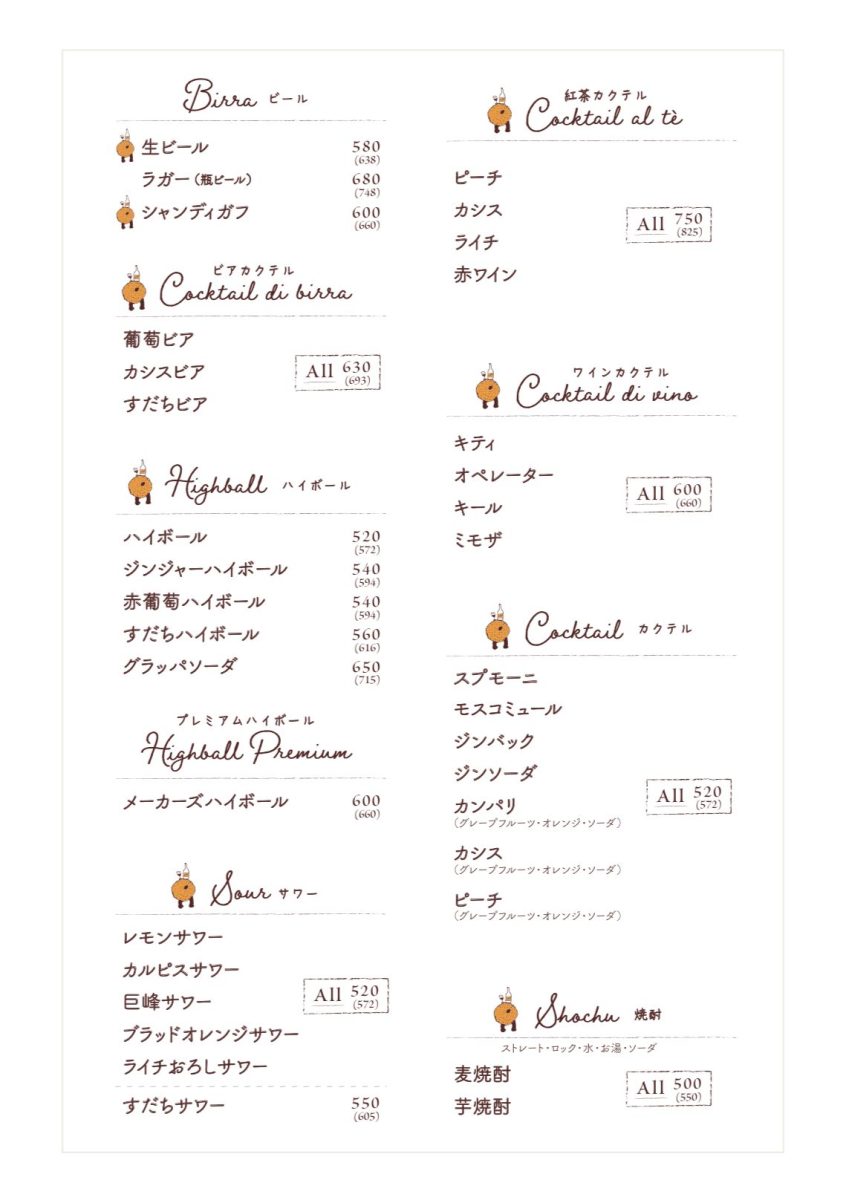 Birra ビール
生ビール 580
(638)
ラガー（瓶ビール） 680
(748)
シャンディガフ 600
(660)
ビアカクテル
Cocktail di birra
葡萄ビア
カシスビア
すだちビア
All 630
(693)
Highball ハイボール
ハイボール 520
(572)
ジンジャーハイボール 540
(594)
赤葡萄ハイボール 540
(594)
すだちハイボール 560
(616)
グラッパソーダ 650
(715)
プレミアムハイボール
Highball Premium
メーカーズハイボール 600
(660)
Sour サワー
レモンサワー
カルピスサワー
巨峰サワー
ブラッドオレンジサワー
ライチおろしサワー
All 520
(572)
すだちサワー 550
(605)
紅茶カクテル
Cocktail al tè
ピーチ
カシス
ライチ
赤ワイン
All 750
(825)
ワインカクテル
Cocktail di vino
キティ
オペレーター
キール
ミモザ
All 600
(660)
Cocktail カクテル
スプモーニ
モスコミュール
ジンバック
ジンソーダ
カンパリ
（グレープフルーツ・オレンジ・ソーダ）
カシス
（グレープフルーツ・オレンジ・ソーダ）
ピーチ
（グレープフルーツ・オレンジ・ソーダ）
All 520
(572)
Shochu 焼酎
ストレート・ロック・水・お湯・ソーダ
麦焼酎
芋焼酎
All 500
(550)